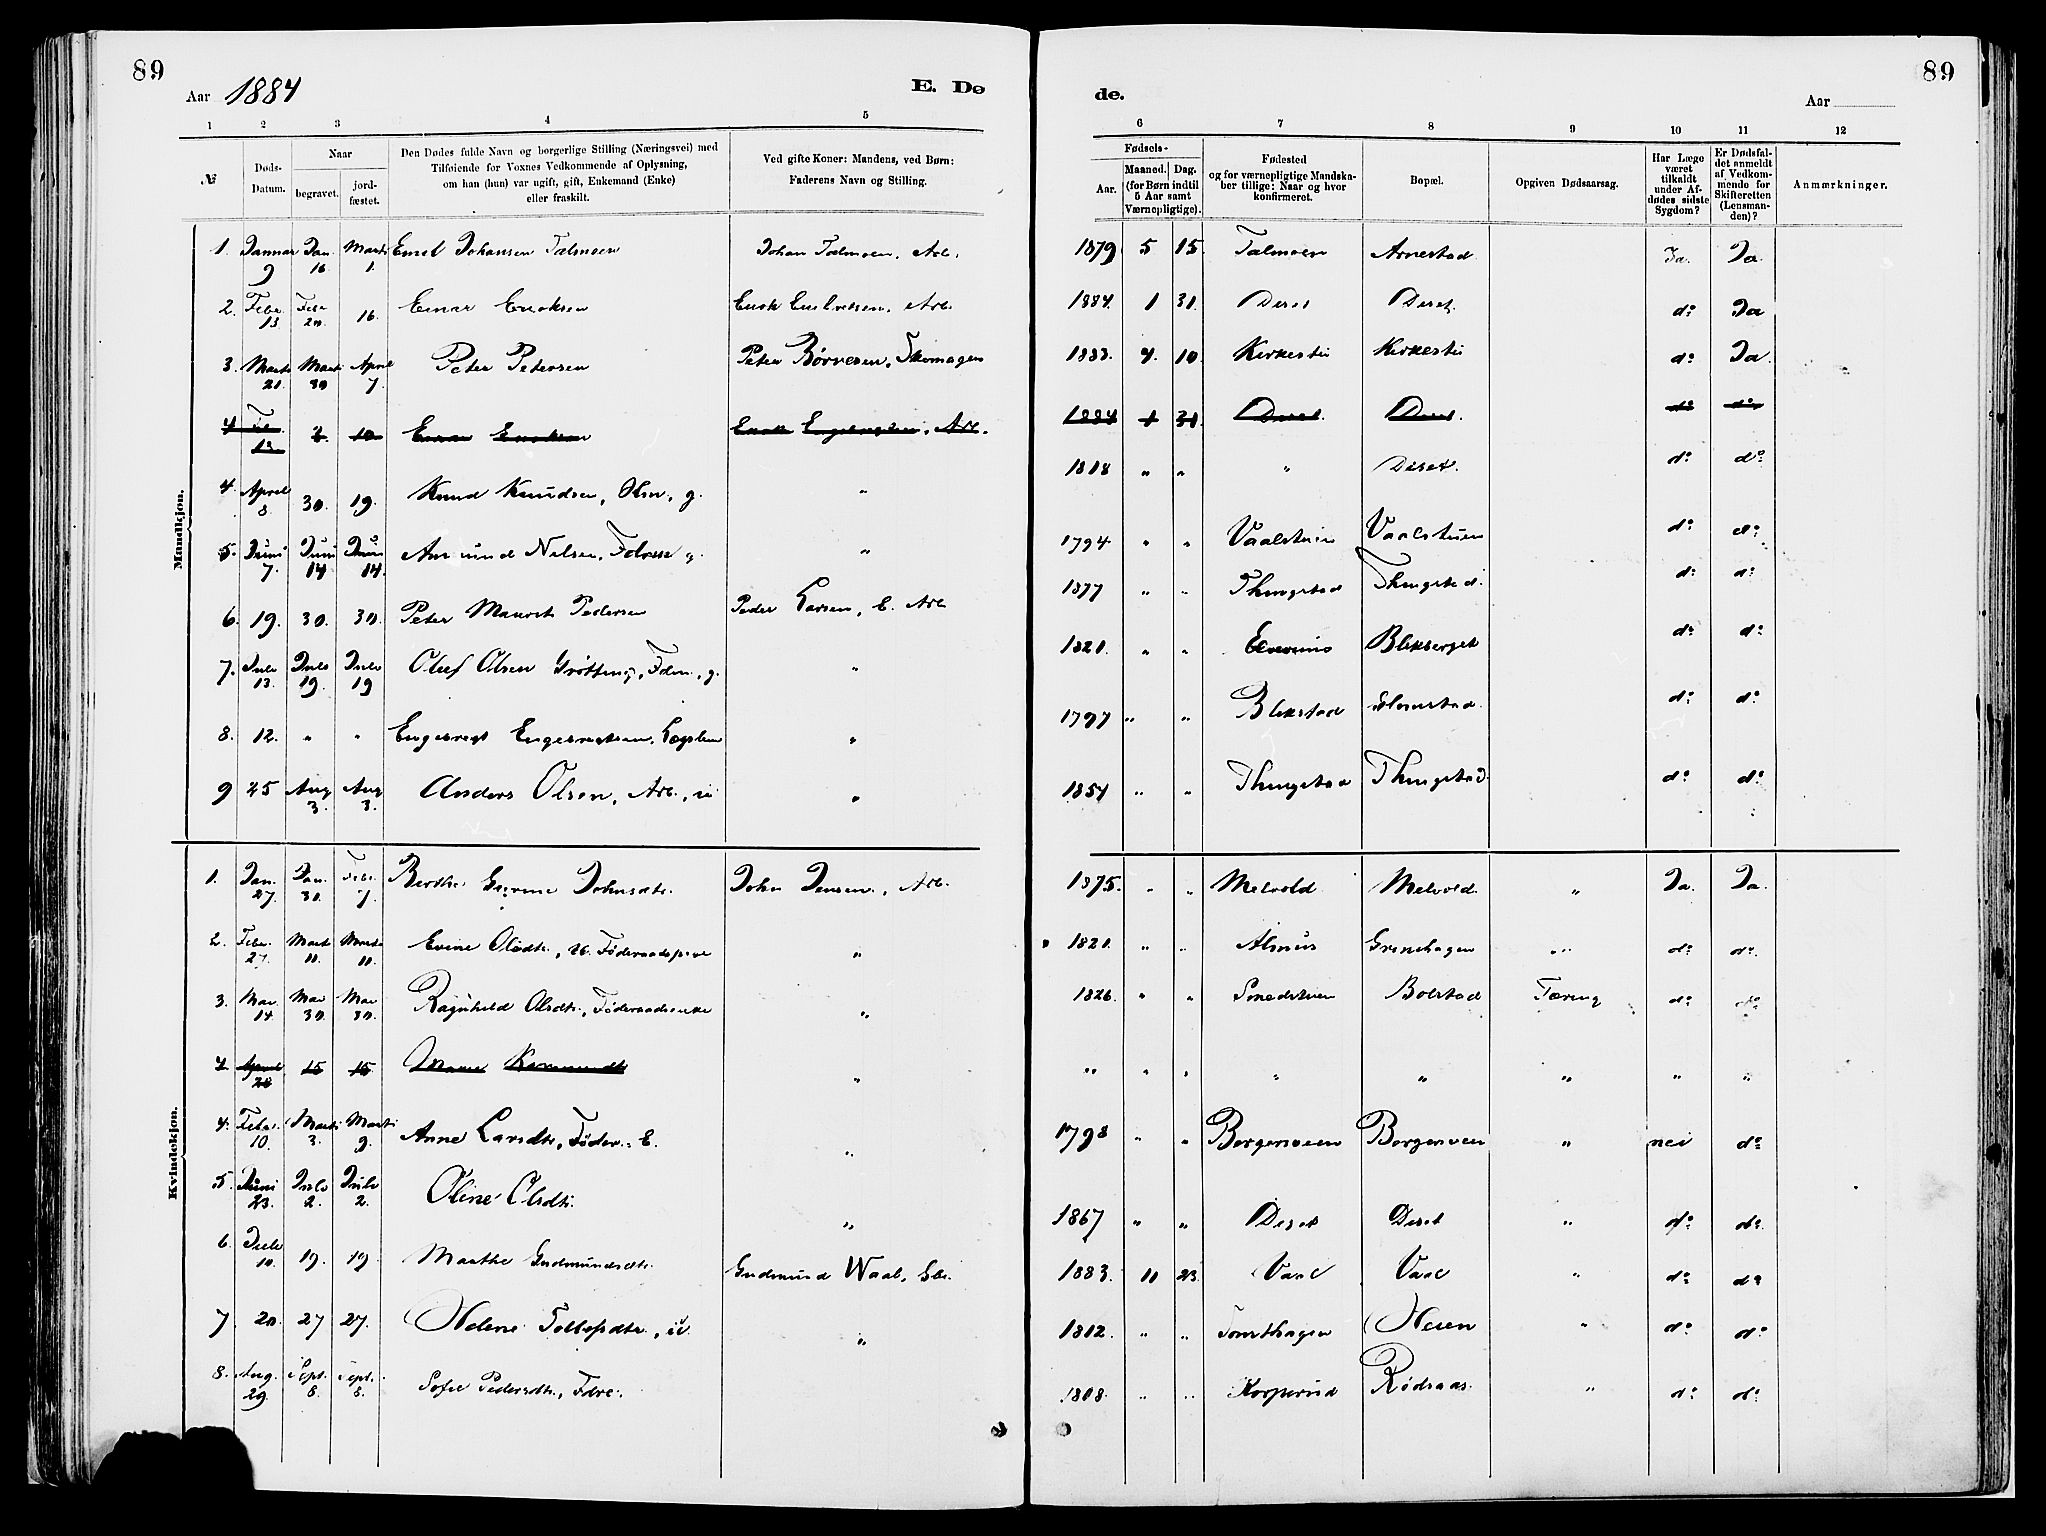 89
Aar 1884
E. Dø
1 2 3 4 5
№
Døds-Datum.
Naar
begravet.
jord-fæstet.
Den Dødes fulde Navn og borgerlige Stilling (Næringsvei) med
Tilføiende for Voxnes Vedkommende af Oplysning,
om han (hun) var ugift, gift, Enkemand (Enke)
eller fraskilt.
Ved gifte Koner: Mandens, ved Børn:
Faderens Navn og Stilling.
Mandkjøn.
1. Januar 9 Jan. 16 Marts 1. Emil Johansen Talmoen Johan Talmoen, Arb.
2. Febr. 13. Febr 20. 16. Einar Enoksen Enok, Arb.
3. Marts 21. Marts 30 April 7. Peter Petersen Peter Børresen, Skomager
4 Feb. 13. 2 10 Einar Enoksen Enok, Arb.
4. April 8. 30. 19. Knud Knudsen, g. "
5. Juni 7. Juni 14 Juni 14. Amund Nilsen, g. "
6. 19. 30. 30. Peter Maurits Pedersen Peder Larsen, E. Arb
7. Juli 13. Juli 19. Juli 19 Oluf Olsen Grøtting, g. "
8. 12. " " Engebregt Engebregtsen, Lægslem "
9 25 Aug 3. Aug 3. Anders Olsen, Arb., u "
Kvindekjøn.
1. Jan. 27. Jan. 30. Febr. 7. Berthe Johnsdtr. John Jensen, Arb.
2. Febr. 27. Marts 11. Marts 11. Evine Olsdtr., Føderaads "
3. Mar. 14. Mar 30. Mar 30. Ragnhild Olsdtr., Føderaadsenke "
4 April 28 15 15 "
4. Febr. 10. Marts 3. Marts 9. Anne Larsdtr., Føder. E. "
5. Juni 23. Juli 2. Juli 2. Oline Olsdtr. "
6. Juli 10. 19. 19. Marthe Gudmundsdtr. Gudmund Waal, Sbr.
7 20. 27 27. Helene Tollefsdtr., u. "
8. Aug. 29. Sept. 8. Sept. 8. Sofie Pedersdtr. "
89
de.
Aar
6 7 8 9 10 11 12
Fødsels-
Aar.
Maaned. Dag.
(for Børn indtil
5 Aar samt
Værnepligtige).
Fødested
og for værnepligtige Mandska-
ber tillige: Naar og hvor
konfirmeret.
Bopæl.
Opgiven Dødsaarsag.
Har Læge
været
tilkaldt
under Af-
dødes sidste
Sygdom?
Er Dødsfal-
det anmeldt
af Vedkom-
mende for
Skifteretten
(Lensman-
den)?
Anmærkninger.
1879 5 15. Talmoen Arnestad Ja. Ja
1884. 1 31. Deset Deset do Ja
1883. 4. 10. Kirkesti Kirkesti do Ja.
1884 1 31 Deset. Deset. do do
1818 " " " Deset. do do
1794 " " Vaalstuen Vaalstuen do do
1877 " " Thingstad Thingstad. do do
1821. " " Blikberget do do
1797 " " Blikstad do do
1854 " " Thingstad Thingstad do do
1875. " " Melvold Melvold. " Ja. Ja.
1821. " " Alm Grinihagen " do do
1826. " " Smedstuen Bolstad Tæring do do
" " " " " " " "
1798 " " Borgersveen Borgersveen " nei do
1867 " " Deset Deset " do do
1883. 11 23. Vaal Vaal " do do
1812. " " Tomthagen " do do
1808. " " Korperud Rødsaas. " do do